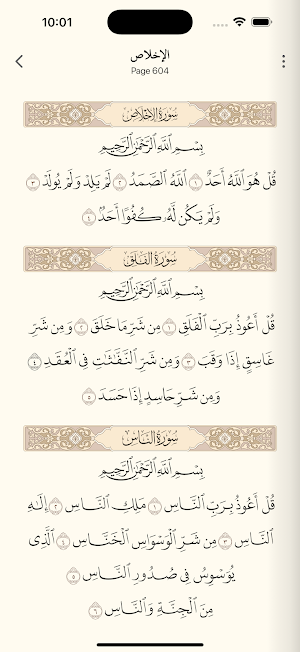 10:01
الإخلاص
Page 604
سورة الإخلاص
بِسْمِ ٱللَّهِ ٱلرَّحْمَٰنِ ٱلرَّحِيمِ
قُلْ هُوَ ٱللَّهُ أَحَدٌ ١ ٱللَّهُ ٱلصَّمَدُ ٢ لَمْ يَلِدْ وَلَمْ يُولَدْ ٣
وَلَمْ يَكُن لَّهُۥ كُفُوًا أَحَدٌۢ ٤
سورة الفلق
بِسْمِ ٱللَّهِ ٱلرَّحْمَٰنِ ٱلرَّحِيمِ
قُلْ أَعُوذُ بِرَبِّ ٱلْفَلَقِ ١ مِن شَرِّ مَا خَلَقَ ٢ وَمِن شَرِّ
غَاسِقٍ إِذَا وَقَبَ ٣ وَمِن شَرِّ ٱلنَّفَّٰثَٰتِ فِى ٱلْعُقَدِ ٤
وَمِن شَرِّ حَاسِدٍ إِذَا حَسَدَ ٥
سورة الناس
بِسْمِ ٱللَّهِ ٱلرَّحْمَٰنِ ٱلرَّحِيمِ
قُلْ أَعُوذُ بِرَبِّ ٱلنَّاسِ ١ مَلِكِ ٱلنَّاسِ ٢ إِلَٰهِ
ٱلنَّاسِ ٣ مِن شَرِّ ٱلْوَسْوَاسِ ٱلْخَنَّاسِ ٤ ٱلَّذِى
يُوَسْوِسُ فِى صُدُورِ ٱلنَّاسِ ٥
مِنَ ٱلْجِنَّةِ وَٱلنَّاسِ ٦